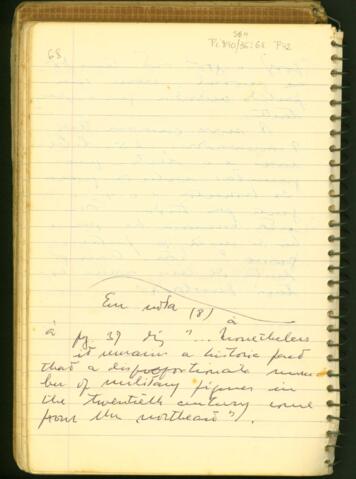 68
Em nota (8) à
à pg 37 diz "... Nonetheless
it remains a historic fact
that a disproportionate num-
ber of military figures in
the twentieth century come
from the northeast").